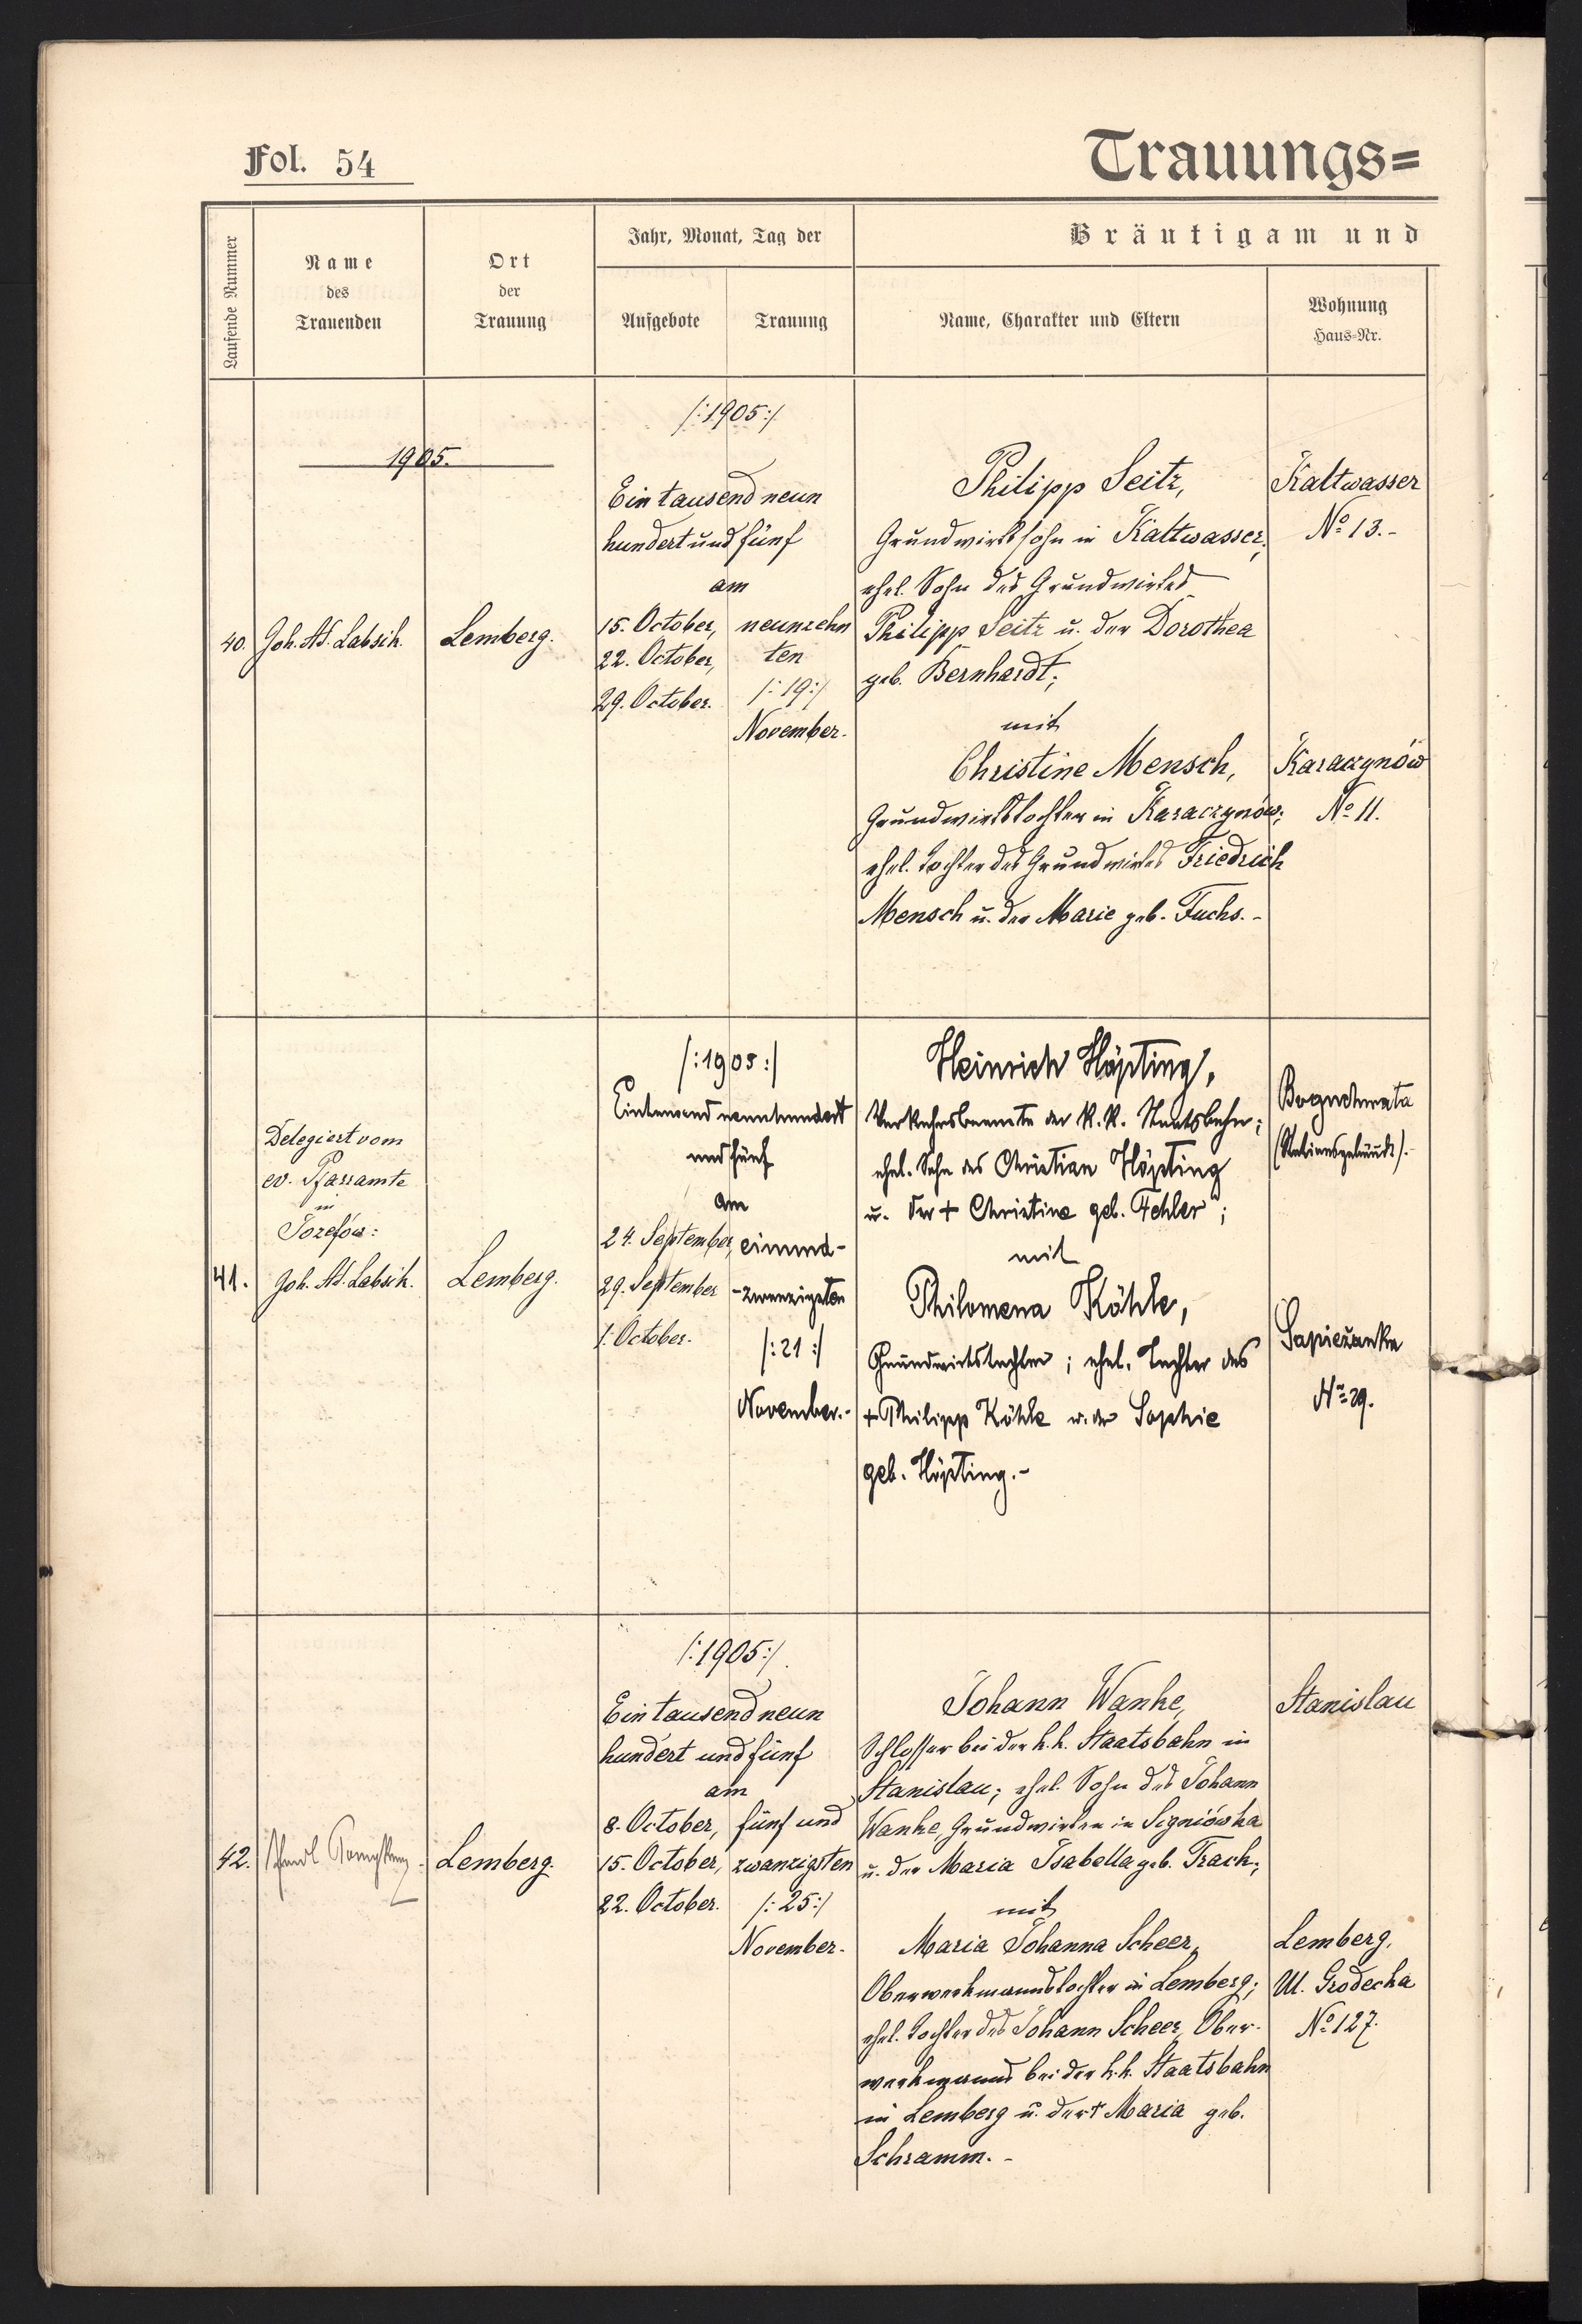 Fol. 54
Trauungs=
Laufende Nummer
Name
des
Trauenden
Ort
der
Trauung
Jahr, Monat, Tag der
Aufgebote
Trauung
Bräutigam und
Name, Charakter und Eltern
Wohnung
Haus-Nr.
1905.
40.
Joh. Ad. Labsik.
Lemberg.
/:1905:/
Ein tausend neun
hundert und fünf
am
15. October,
22. October,
29. October.
neunzehn
ten
/:19:/
November.
Philipp Seitz,
Grundwirtssohn in Kaltwasser;
ehel. Sohn des Grundwirtes
Philipp Seitz u. der Dorothea
geb. Bernhardt;
mit
Christine Mensch,
Grundwirtstochter in Karaczynów;
ehel. Tochter des Grundwirtes Friedrich
Mensch u. der Marie geb. Fuchs.-
Kaltwasser
No 13.-
Karaczynów
No 11.
41.
Delegiert vom
ev. Pfarramte
in
Josefów:
Joh. Ad. Labsik.
Lemberg.
/:1905:/
Eintausend neunhundert
und fünf
am
24. September,
29. September
1. October.
einund-
-zwanzigsten
/:21:/
November.-
Heinrich Höpting,
Verkehrsbeamte der K.K. Staatsbahn;
ehel. Sohn des Christian Höpting
u. der + Christine geb. Fehler;
mit
Philomena Köhle,
Grundwirtstochter; ehel. Tochter des
+ Philipp Köhle u. der Sophie
geb. Höpting.-
Sapieżanka
No 29.
42.
Lemberg.
/:1905:/
Ein tausend neun
hundert und fünf
am
8. October,
15. October,
22. October.
fünf und
zwanzigsten
/:25:/
November.
Johann Wanke,
Schlosser bei der k.k. Staatsbahn in
Stanislau; ehel. Sohn des Johann
Wanke, Grundwirten in Sygniówka
u. der Maria Isabella geb. Trach;
mit
Maria Johanna Scheer,
Oberwerkmannstochter in Lemberg;
ehel. Tochter des Johann Scheer, Ober-
werkmanns bei der k.k. Staatsbahn
in Lemberg u. der + Maria geb.
Schramm.-
Stanislau
Lemberg,
Ul. Grodecka
No 127.